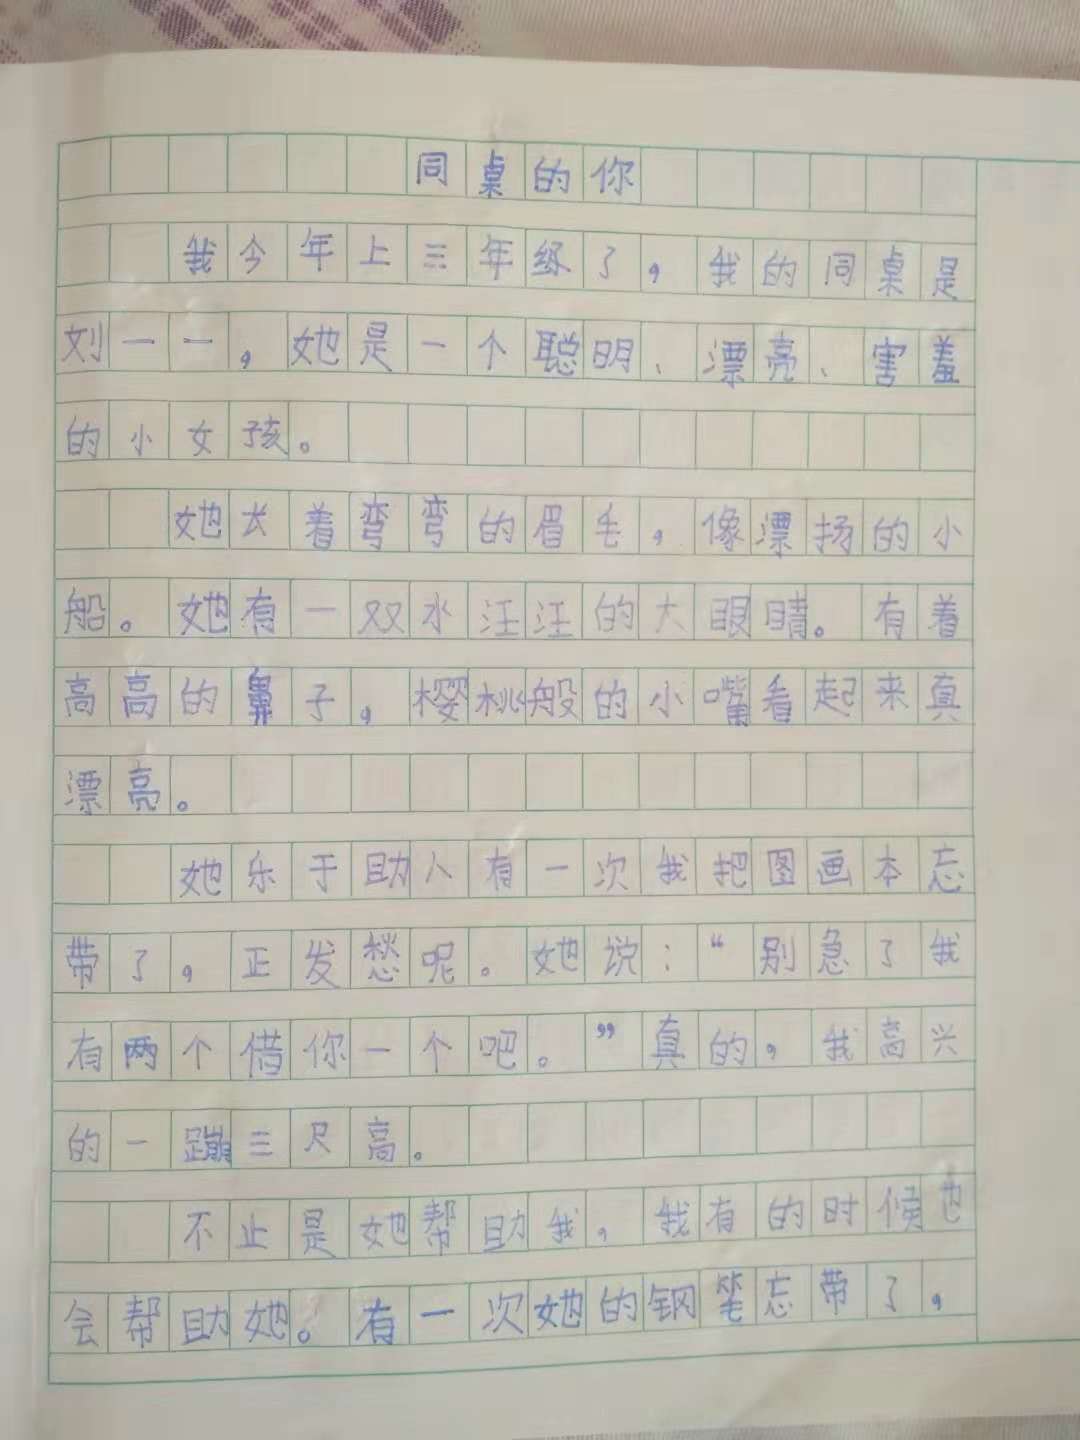 同桌的你
我今年上三年练了，我的同桌是
刘一一，她是一个聪明、漂亮、害羞
的小女孩。
她长着弯弯的眉毛，像漂扬的小
船。她有一双水汪汪的大眼睛。有着
高高的鼻子，樱桃般的小嘴看起来真
漂亮。
她乐于助人有一次我把图画本忘
带了，正发愁呢。她说：“别急了我
有两个借你一个吧。”真的，我高兴
的一蹦三尺高。
不止是她帮助我，我有的时候也
会帮助她。有一次她的钢笔忘带了，